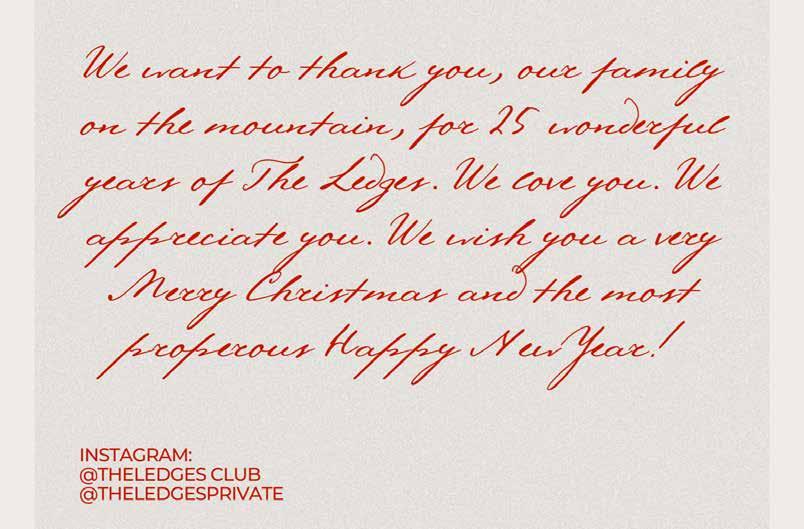 We want to thank you, our family
on the mountain, for 25 wonderful
years of The Ledges. We love you. We
appreciate you. We wish you a very
Merry Christmas and the most
properous Happy New Year!
INSTAGRAM:
@THELEDGES CLUB
@THELEDGESPRIVATE